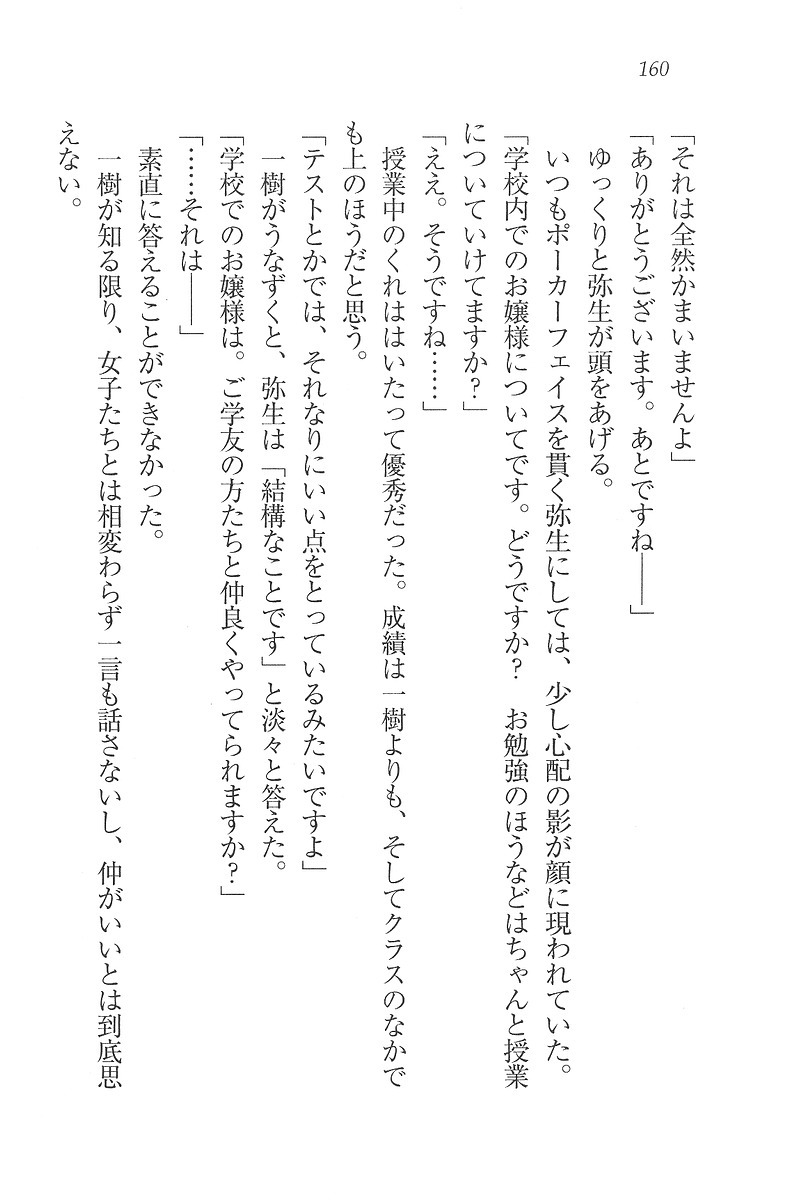 160
「それは全然かまいませんよ」
「ありがとうございます。あとですね――」
ゆっくりと弥生が頭をあげる。
いつもポーカーフェイスを貫く弥生にしては、少し心配の影が顔に現われていた。
「学校内でのお嬢様についてです。どうですか?　お勉強のほうなどはちゃんと授業
についていけてますか?」
「ええ。そうですね……」
授業中のくれははいたって優秀だった。成績は一樹よりも、そしてクラスのなかで
も上のほうだと思う。
「テストとかでは、それなりにいい点をとっているみたいですよ」
一樹がうなずくと、弥生は「結構なことです」と淡々と答えた。
「学校でのお嬢様は。ご学友の方たちと仲良くやってられますか?」
「……それは――」
素直に答えることができなかった。
一樹が知る限り、女子たちとは相変わらず一言も話さないし、仲がいいとは到底思
えない。